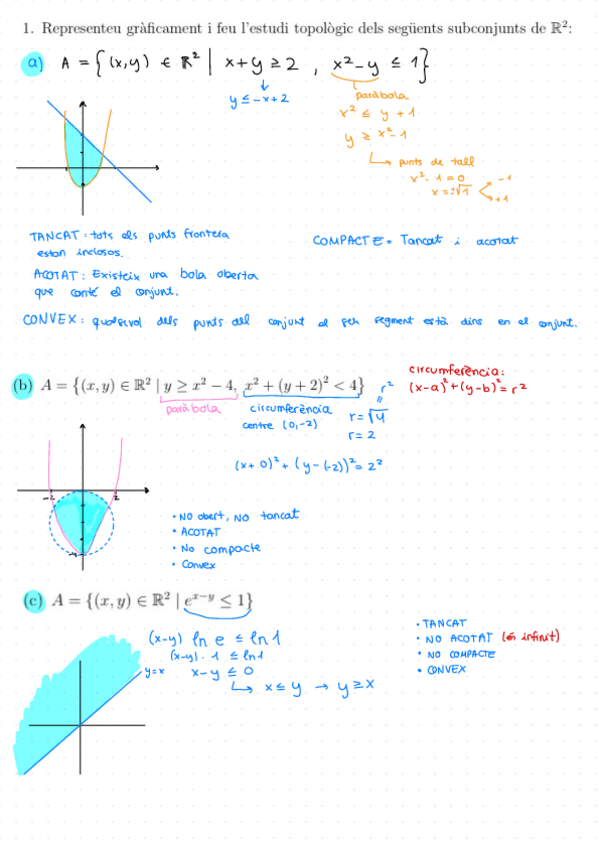 1. Representeu gràficament i feu l'estudi topològic dels següents subconjunts de ℝ²:
a) A = { (x,y) ∈ ℝ² | x+y ≥ 2 , x²-y ≤ 1 }
↓
y ≤ -x+2
paràbola
x² ≤ y + 1
y ≥ x²-1
↳ punts de tall
x²-1 = 0
x = ±√1 < -1
+1
TANCAT: tots els punts frontera
estan inclosos.
ACOTAT: Existeix una bola oberta
que conté el conjunt.
COMPACTE = Tancat i acotat
CONVEX: qualsevol dels punts del conjunt el seu segment està dins en el conjunt.
(b) A = {(x, y) ∈ ℝ² | y ≥ x² − 4, x² + (y + 2)² < 4}
paràbola
circumferència
centre (0,-2)
r²
=
r = √4
r = 2
circumferència:
(x-a)²+(y-b)² = r²
(x+0)² + (y-(-2))² = 2²
-2
2
-4
• NO obert, NO tancat
• ACOTAT
• No compacte
• Convex
(c) A = {(x, y) ∈ ℝ² | e^{x−y} ≤ 1}
(x-y) ln e ≤ ln 1
(x-y) · 1 ≤ ln 1
x-y ≤ 0
↳ x ≤ y → y ≥ x
y=x
• TANCAT
• NO ACOTAT (és infinit)
• NO COMPACTE
• CONVEX